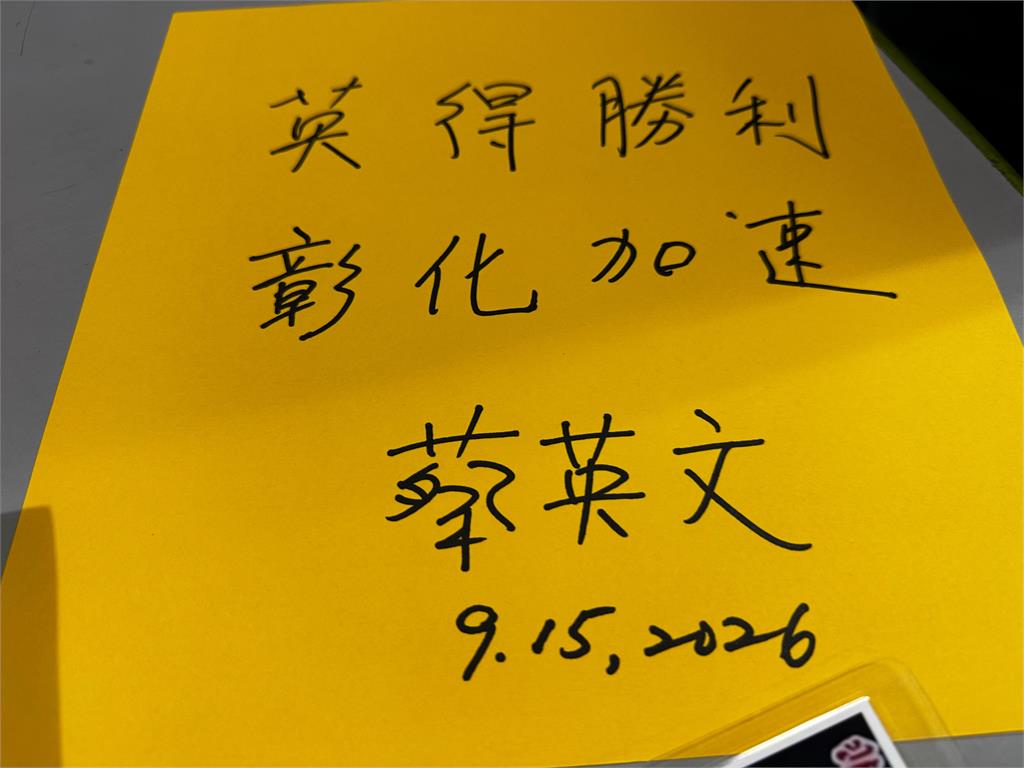 英得勝利
彰化加速
蔡英文
9.15,2026